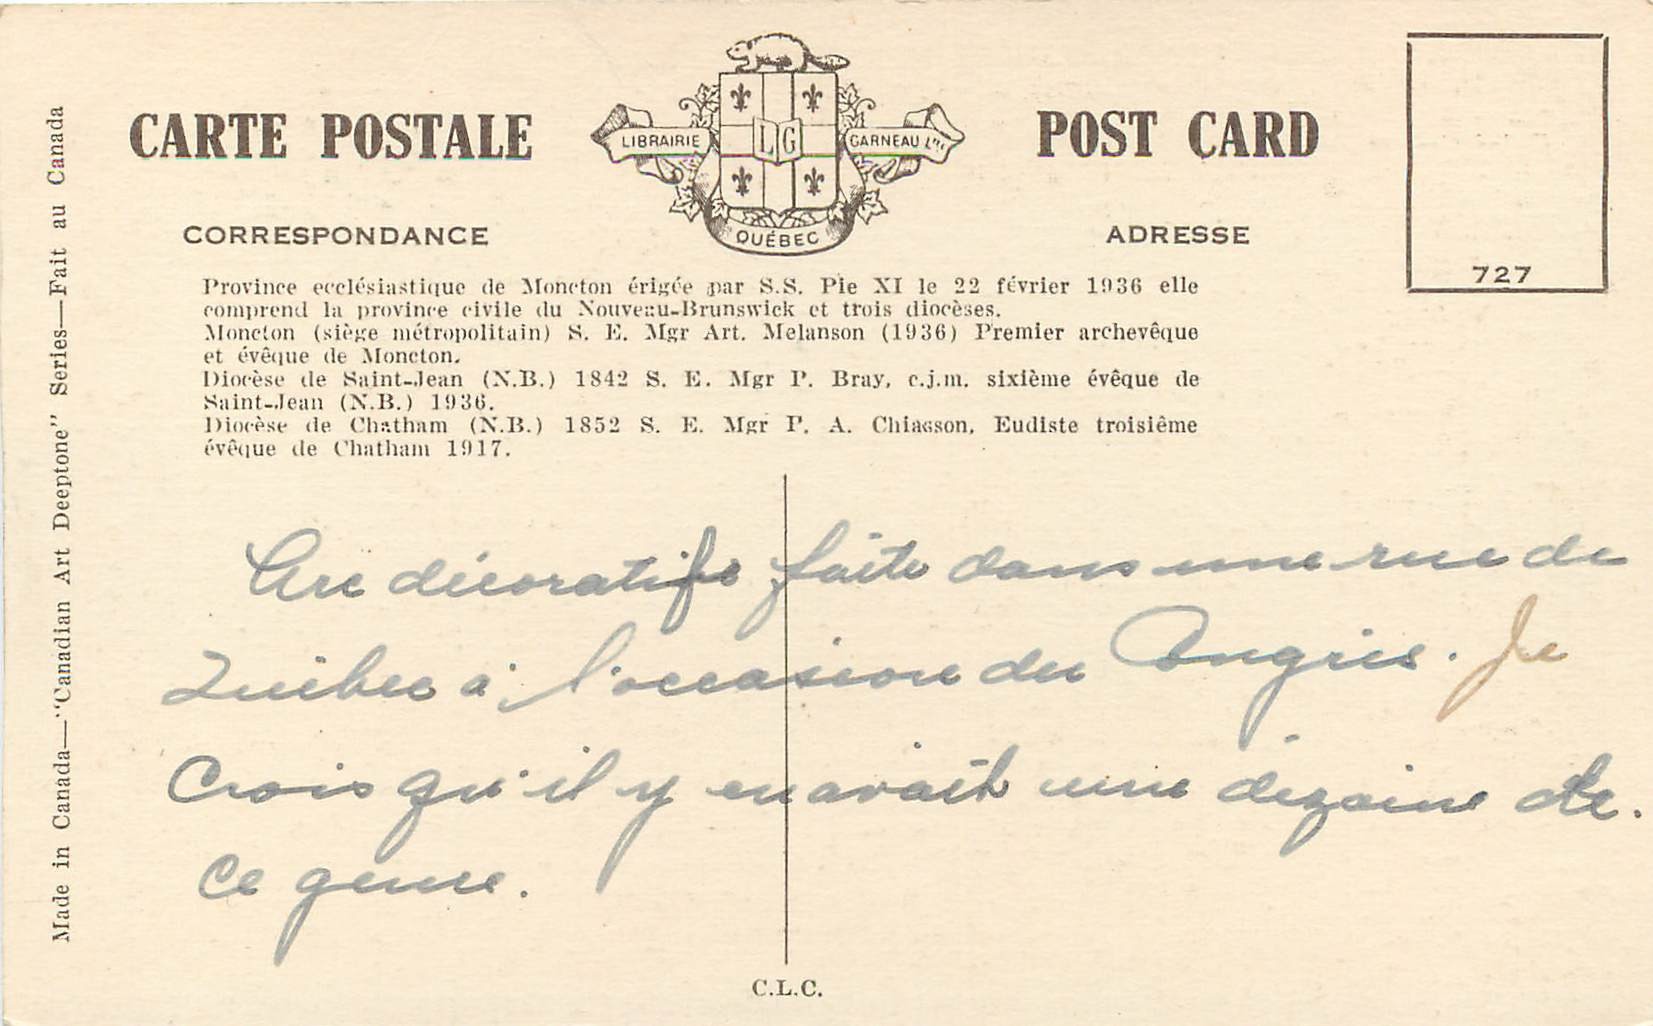 CARTE POSTALE
LIBRAIRIE
LG
GARNEAU Ltée
QUÉBEC
POST CARD
CORRESPONDANCE
ADRESSE
727
Province ecclésiastique de Moncton érigée par S.S. Pie XI le 22 février 1936 elle
comprend la province civile du Nouveau-Brunswick et trois diocèses.
Moncton (siège métropolitain) S. E. Mgr Art. Melanson (1936) Premier archevêque
et évêque de Moncton.
Diocèse de Saint-Jean (N.B.) 1842 S. E. Mgr P. Bray, c.j.m. sixième évêque de
Saint-Jean (N.B.) 1936.
Diocèse de Chatham (N.B.) 1852 S. E. Mgr P. A. Chiasson, Eudiste troisième
évêque de Chatham 1917.
Arc décoratifs faite dans une rue de
Québec à l'occasion du Congrès. Je
crois qu'il y en avait une dizaine de.
ce genre.
C.L.C.
Made in Canada—"Canadian Art Deeptone" Series—Fait au Canada